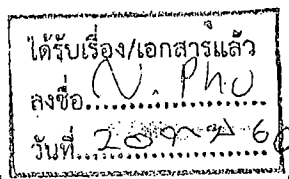 ได้รับเรื่อง/เอกสารแล้ว
ลงชื่อ N. Phu
วันที่ 20